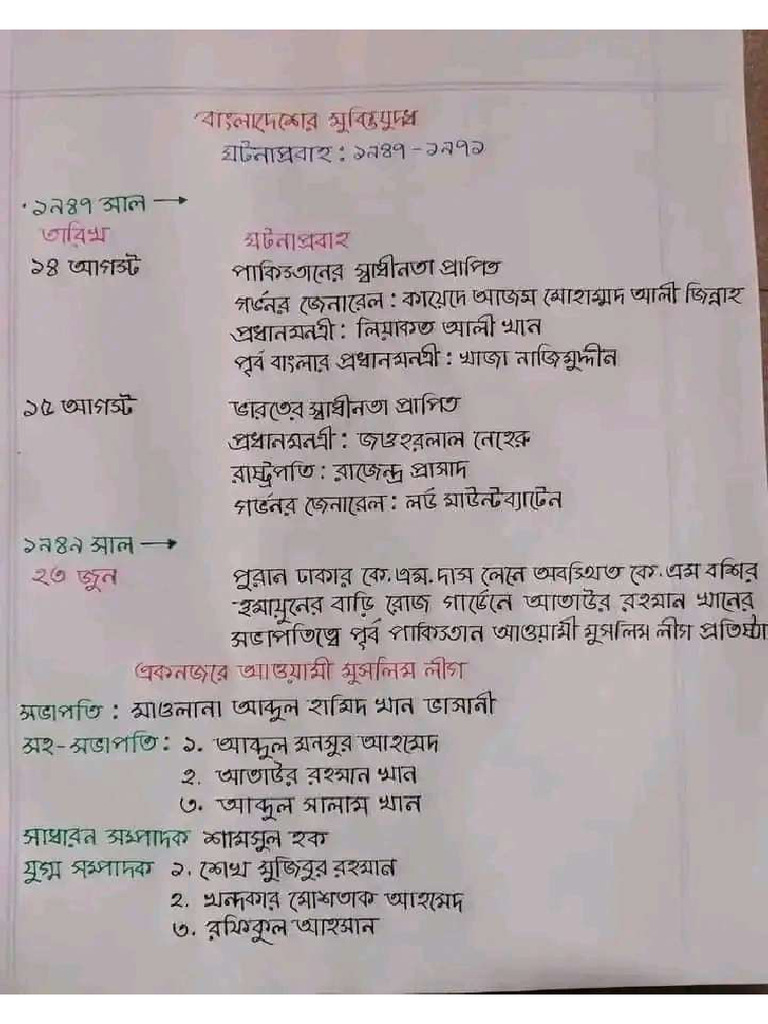 বাংলাদেশের মুক্তিযুদ্ধ
ঘটনাপ্রবাহ : ১৯৪৭ - ১৯৭১
১৯৪৭ সাল →
তারিখ ঘটনাপ্রবাহ
১৪ আগস্ট পাকিস্তানের স্বাধীনতা প্রাপ্তি
গর্ভনর জেনারেল : কায়েদে আজম মোহাম্মদ আলী জিন্নাহ
প্রধানমন্ত্রী : লিয়াকত আলী খান
পূর্ব বাংলার প্রধানমন্ত্রী : খাজা নাজিমুদ্দীন
১৫ আগস্ট ভারতের স্বাধীনতা প্রাপ্তি
প্রধানমন্ত্রী : জওহরলাল নেহেরু
রাষ্ট্রপতি : রাজেন্দ্র প্রাসাদ
গর্ভনর জেনারেল : লর্ড মাউন্টব্যাটেন
১৯৪৯ সাল →
২৩ জুন পুরান ঢাকার কে.এম.দাস লেনে অবস্থিত কে.এম বশির
হুমায়ুনের বাড়ি রোজ গার্ডেনে আতাউর রহমান খানের
সভাপতিত্বে পূর্ব পাকিস্তান আওয়ামী মুসলিম লীগ প্রতিষ্ঠা
একনজরে আওয়ামী মুসলিম লীগ
সভাপতি : মাওলানা আব্দুল হামিদ খান ভাসানী
সহ-সভাপতি : ১. আব্দুল মনসুর আহমেদ
২. আতাউর রহমান খান
৩. আব্দুল সালাম খান
সাধারন সম্পাদক শামসুল হক
যুগ্ম সম্পাদক ১. শেখ মুজিবুর রহমান
২. খন্দকার মোশতাক আহমেদ
৩. রফিকুল আহসান